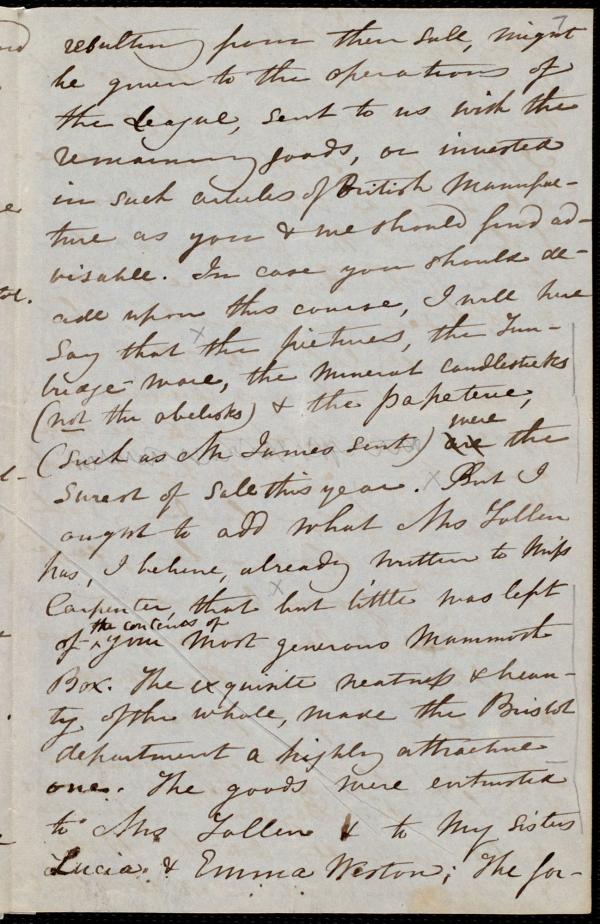 7
resulting from their sale, might
be given to the operations of
the League, sent to us with the
remaining goods, or invested
in such articles of British Manufac-
ture as you & we should find ad-
visable. In case you should de-
cide upon this course, I will here
say that the pictures, the Tun-
bridge-ware, the mineral candlesticks
(not the obelisks) & the papeterie,
were
(such as Mr James sent) are the
surest of sale this year. But I
ought to add what Mrs Follen
has, I believe, already written to Miss
Carpenter, that but little was left
the contents of
of your most generous Mammoth
Box. The exquisite neatness & beau-
ty of the whole, made the Bristol
department a highly attractive
one. The goods were entrusted
to Mrs Follen & to my sisters
Lucia & Emma Weston; the for-